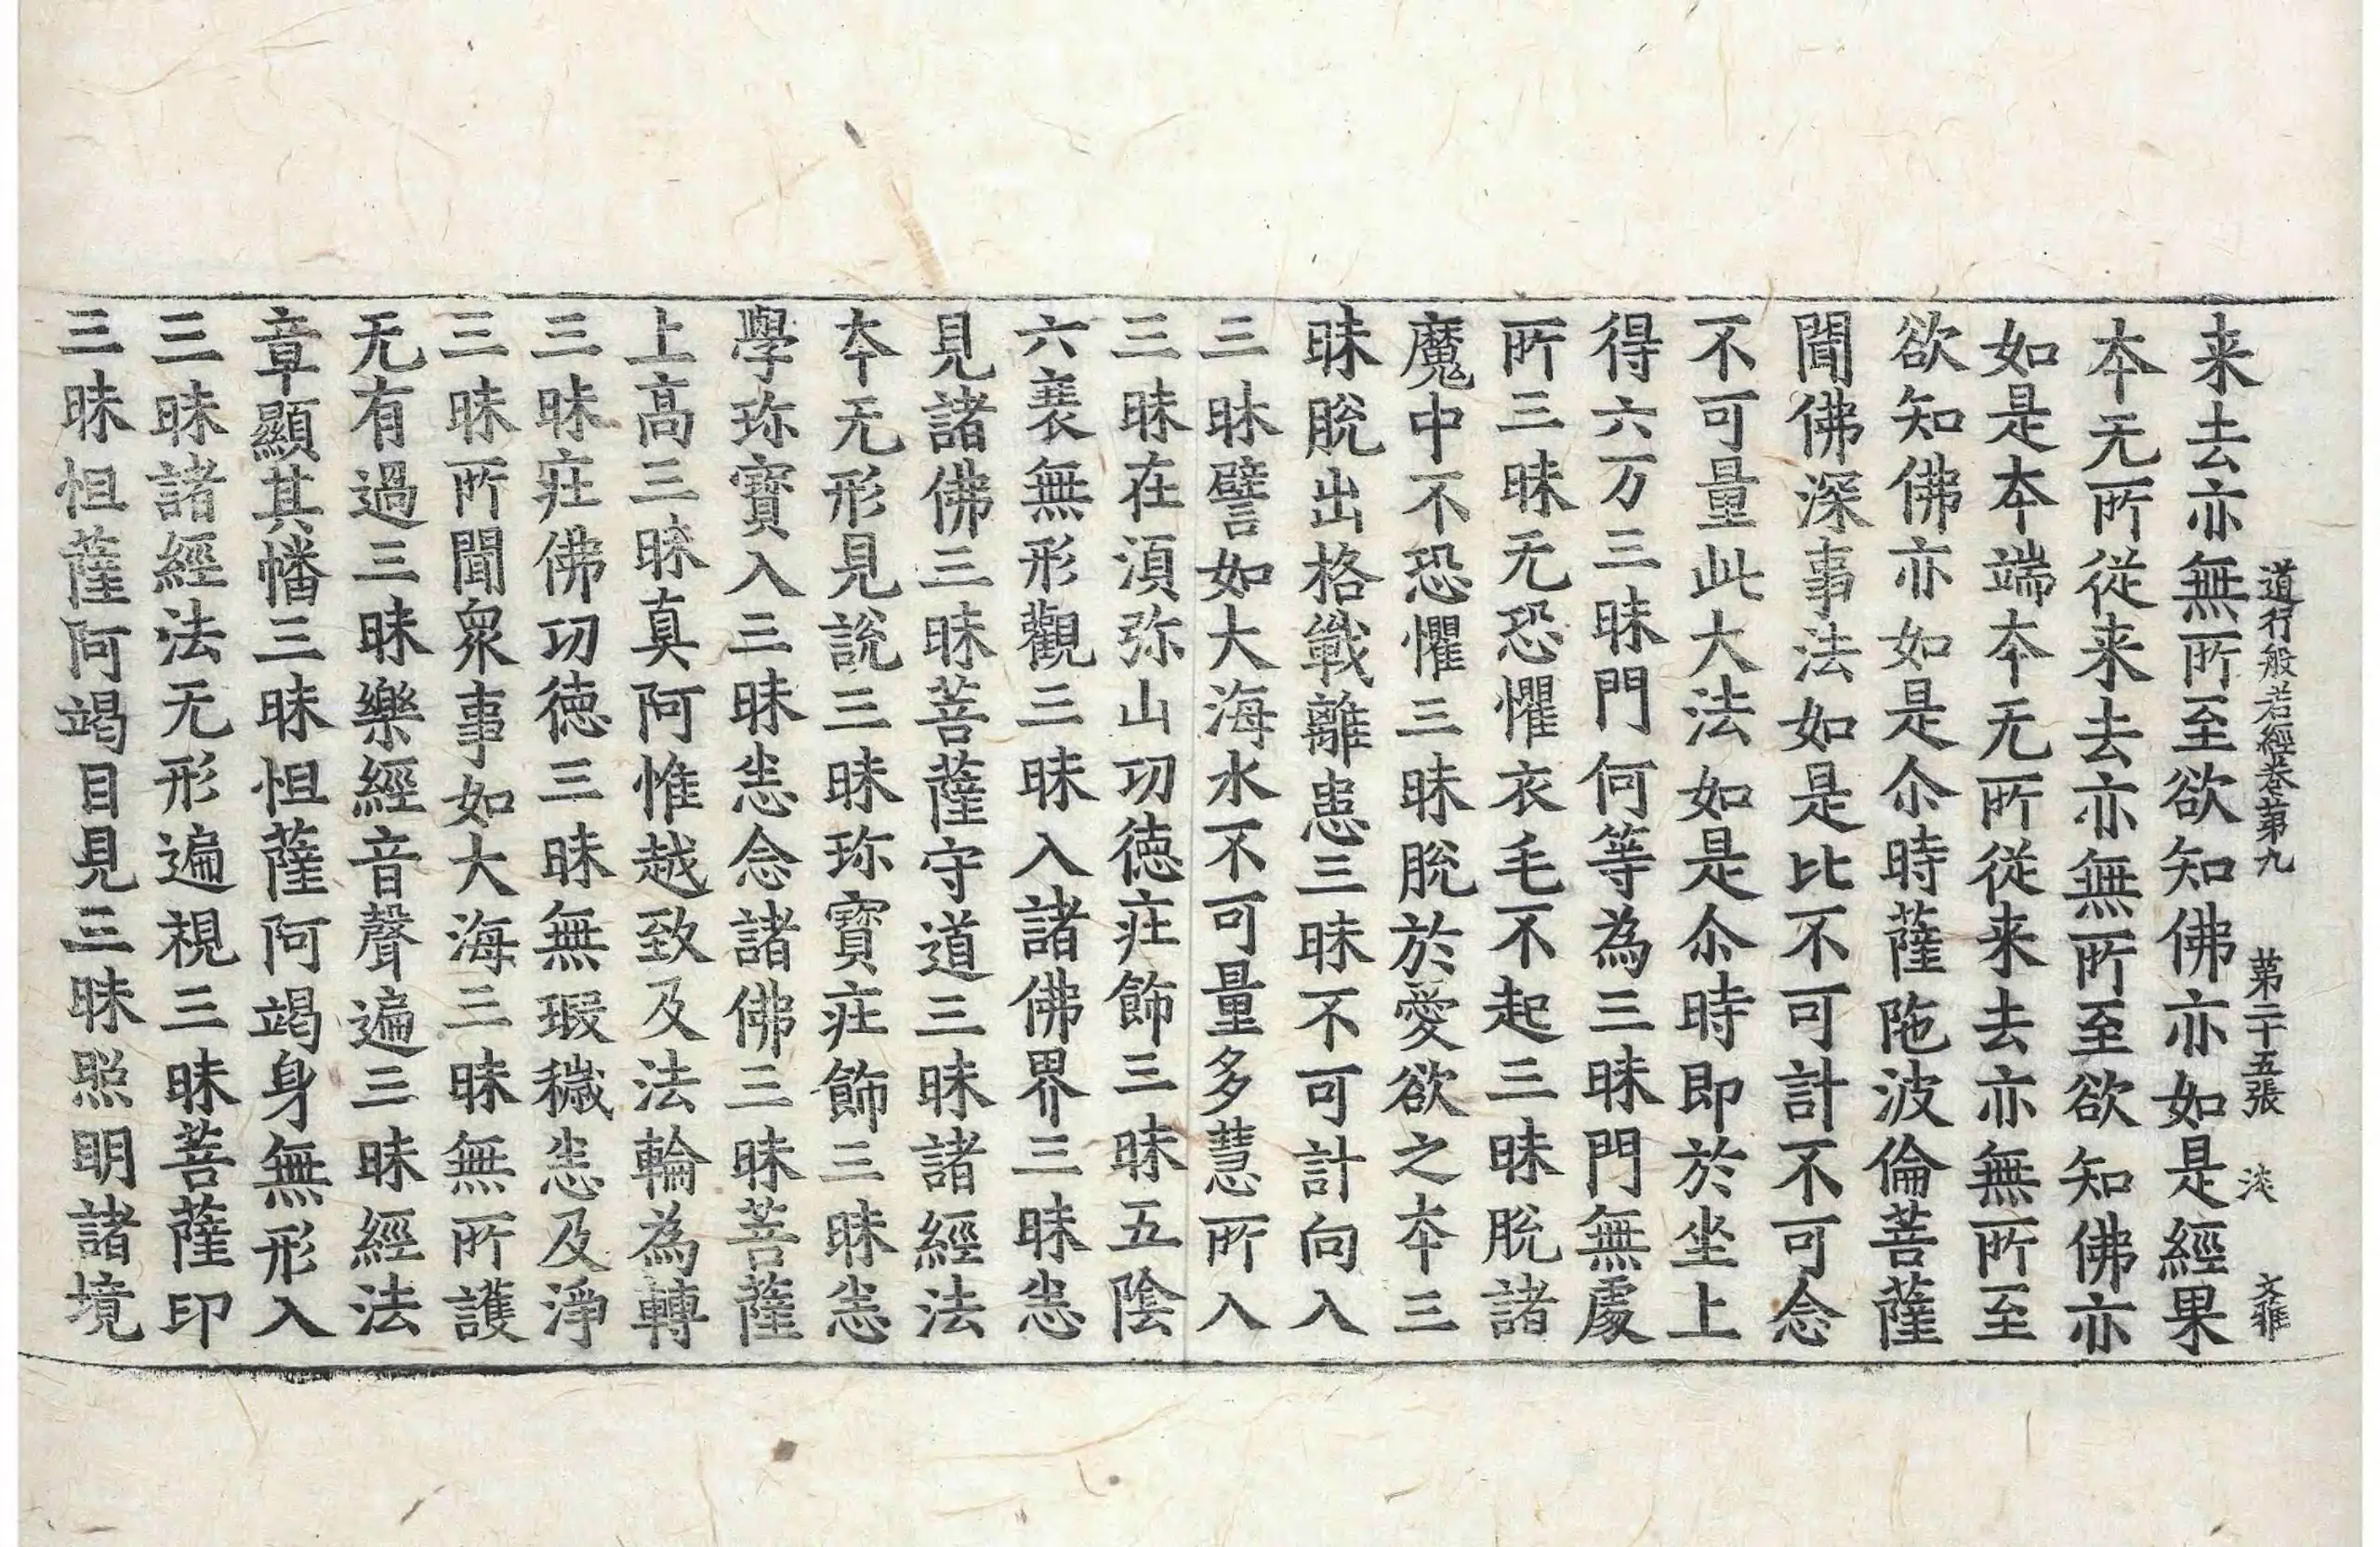 道行般若經卷第九　第二十五張　淡　文雅
来去亦無所至欲知佛亦如是經果
本无所従来去亦無所至欲知佛亦
如是本端本无所従来去亦無所至
欲知佛亦如是尒時薩陁波倫菩薩
聞佛深事法如是比不可計不可念
不可量此大法如是尒時即於坐上
得六万三昧門何等為三昧門無處
所三昧无恐懼衣毛不起三昧脫諸
魔中不恐懼三昧脫於愛欲之本三
昧脫出格戰離患三昧不可計向入
三昧譬如大海水不可量多慧所入
三昧在湏弥山功徳莊飾三昧五陰
六衰無形觀三昧入諸佛界三昧悉
見諸佛三昧菩薩守道三昧諸經法
本无形見說三昧珎寶莊飾三昧悉
學珎寶入三昧悉念諸佛三昧菩薩
上高三昧真阿惟越致及法輪為轉
三昧莊佛功徳三昧無瑕穢悉及淨
三昧所聞衆事如大海三昧無所護
无有過三昧樂經音聲遍三昧經法
章顯其幡三昧怛薩阿竭身無形入
三昧諸經法无形遍視三昧菩薩印
三昧怛薩阿竭目見三昧照明諸境